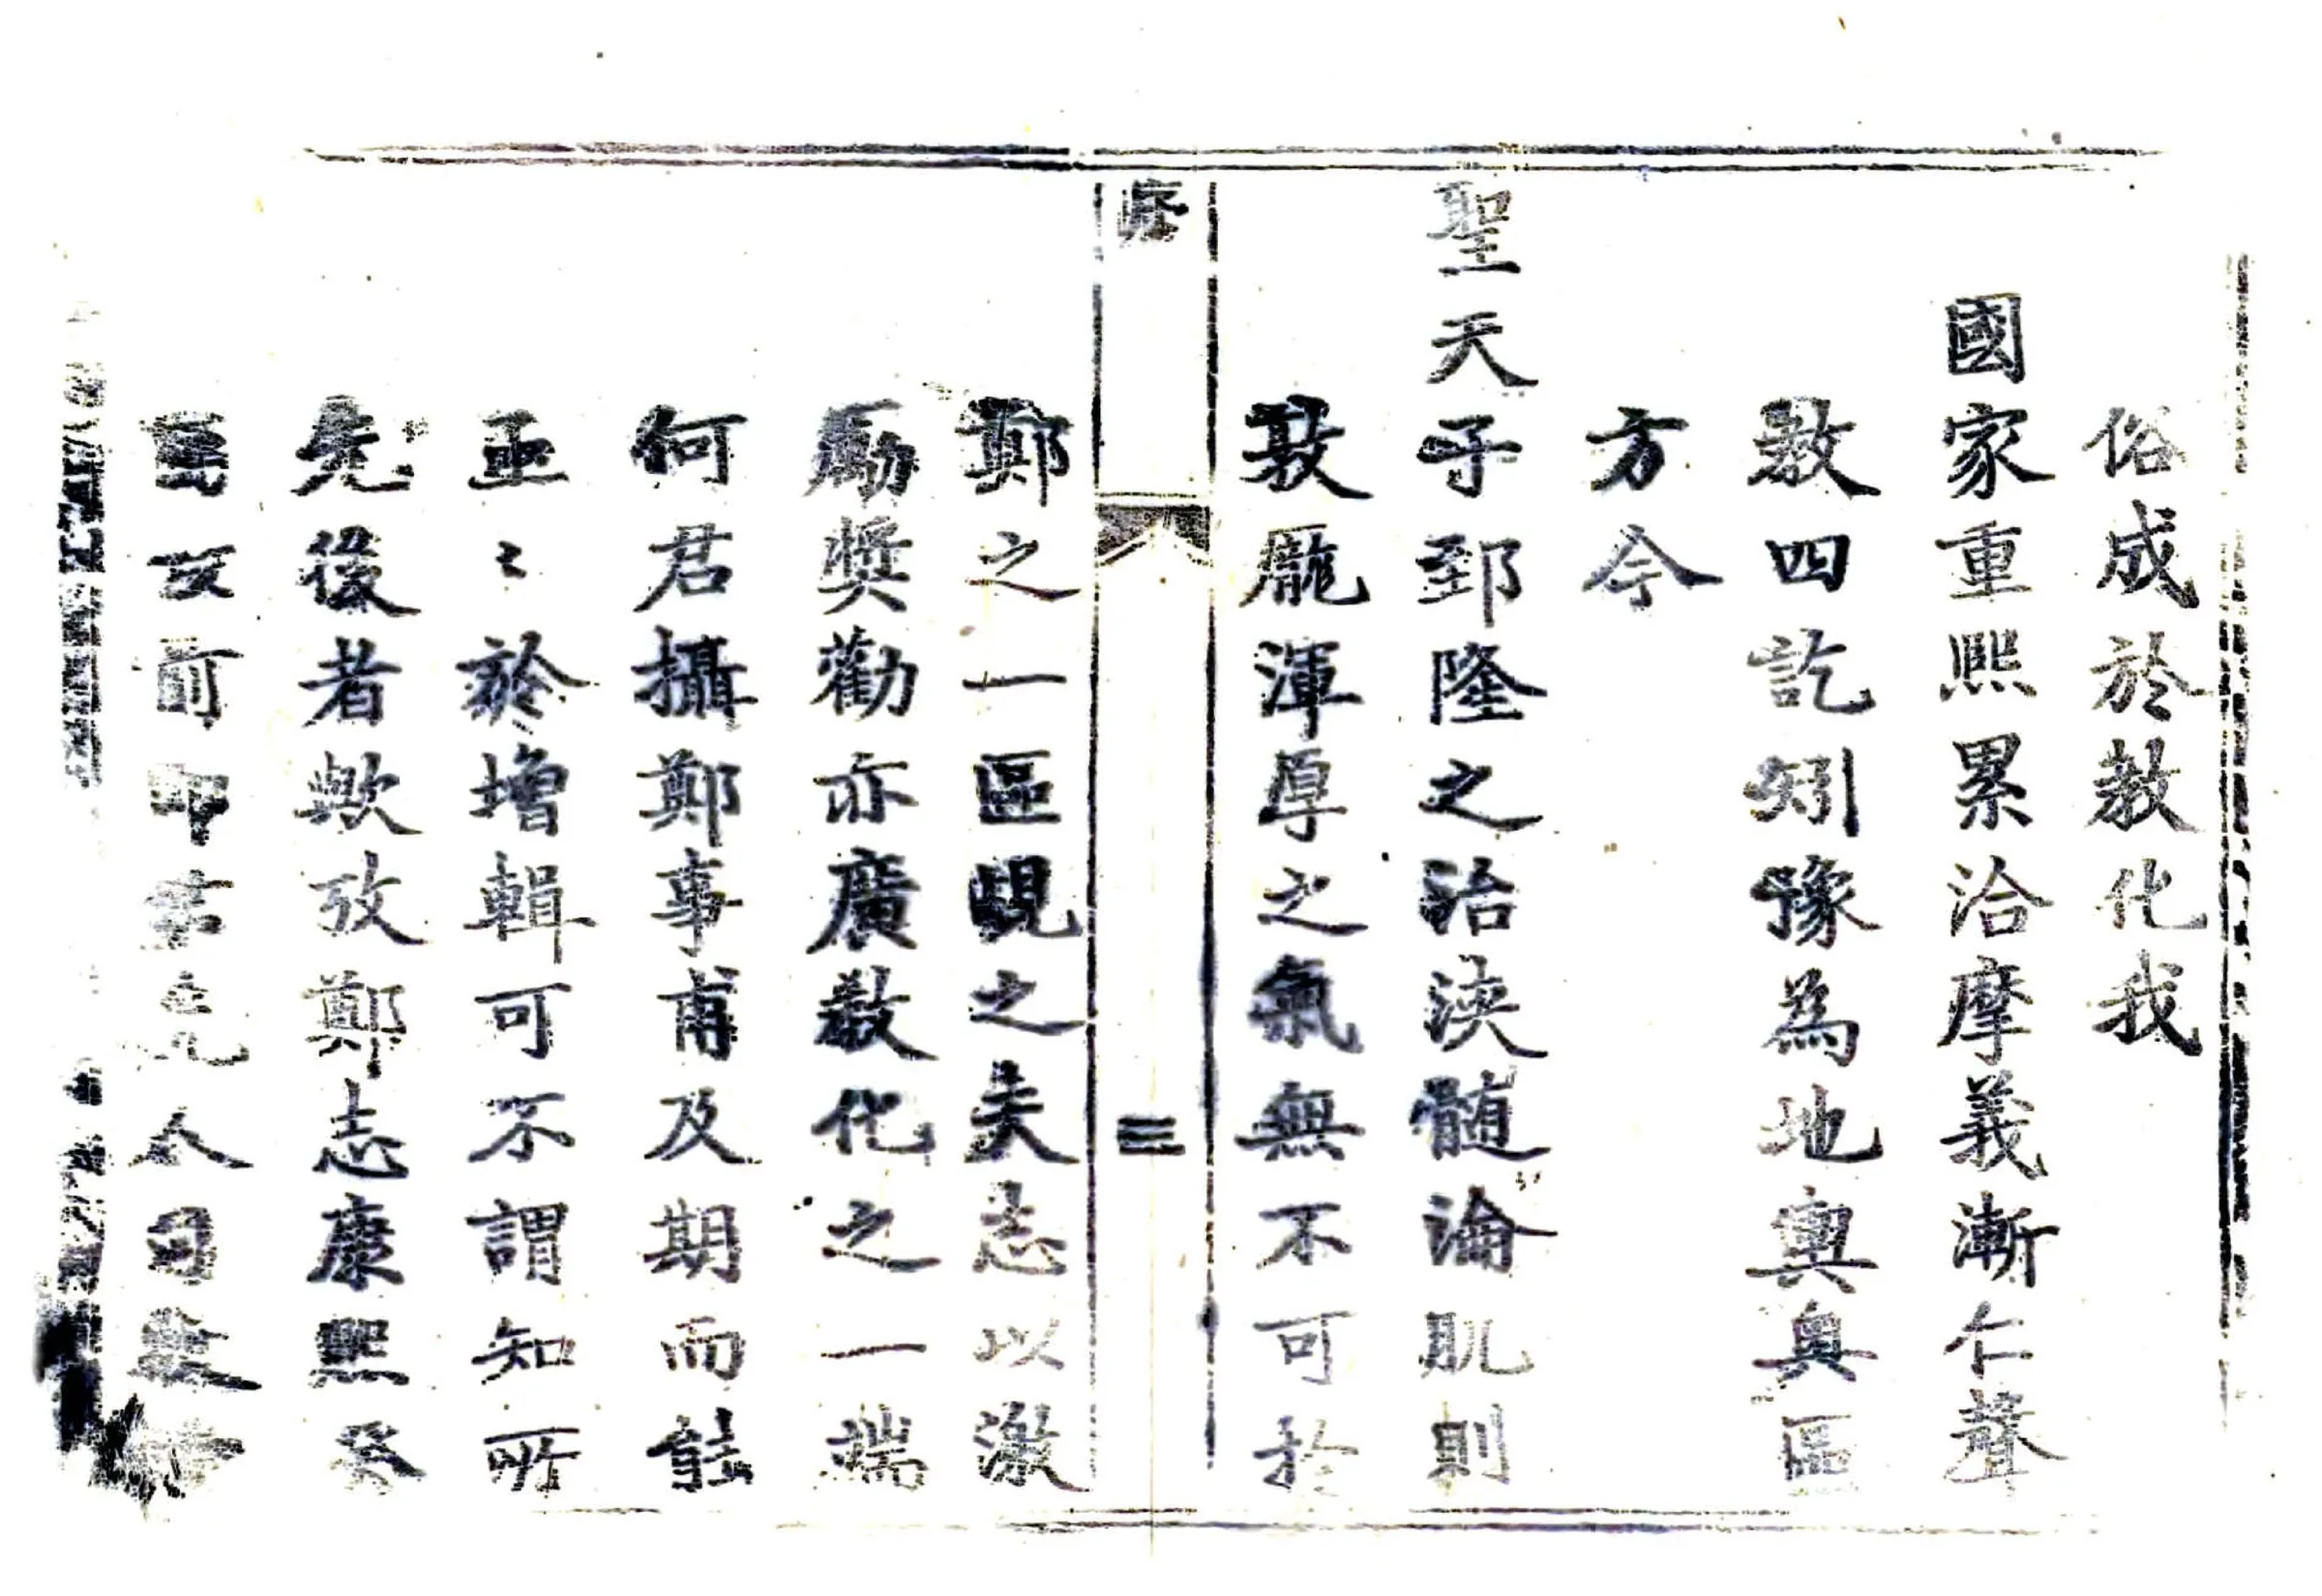 俗成於教化我
國家重熙累洽摩義漸仁聲
教四訖矧豫為地輿奥區
方今
聖天子郅隆之治浹髓淪肌則
敦龎渾厚之氣無不可於
序
三
鄭之一區覘之矣志以激
勵奬勸亦廣教化之一端
何君攝鄭事甫及期而能
亟〻於增輯可不謂知所
先後者歟攷鄭志康熙癸